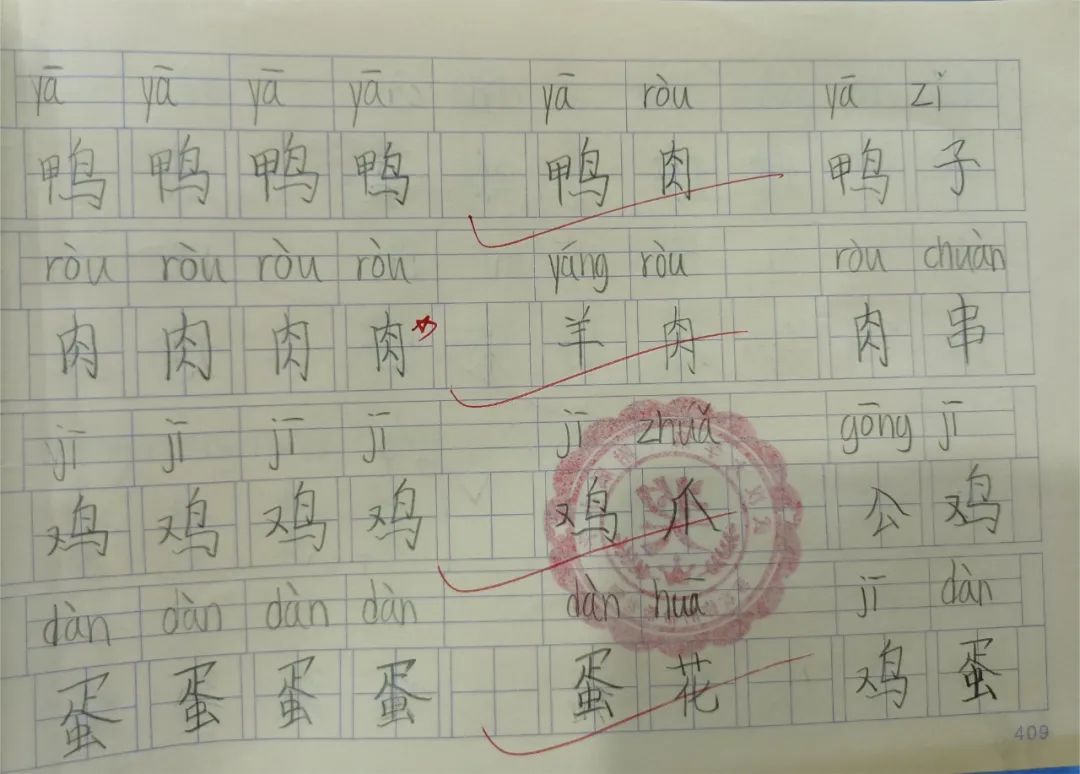 yā yā yā yā yā ròu yā zǐ
鸭 鸭 鸭 鸭 鸭 肉 鸭 子
ròu ròu ròu ròu yáng ròu ròu chuàn
肉 肉 肉 肉 羊 肉 肉 串
jī jī jī jī jī zhuǎ gōng jī
鸡 鸡 鸡 鸡 鸡 爪 公 鸡
dàn dàn dàn dàn dàn huā jī dàn
蛋 蛋 蛋 蛋 蛋 花 鸡 蛋
409